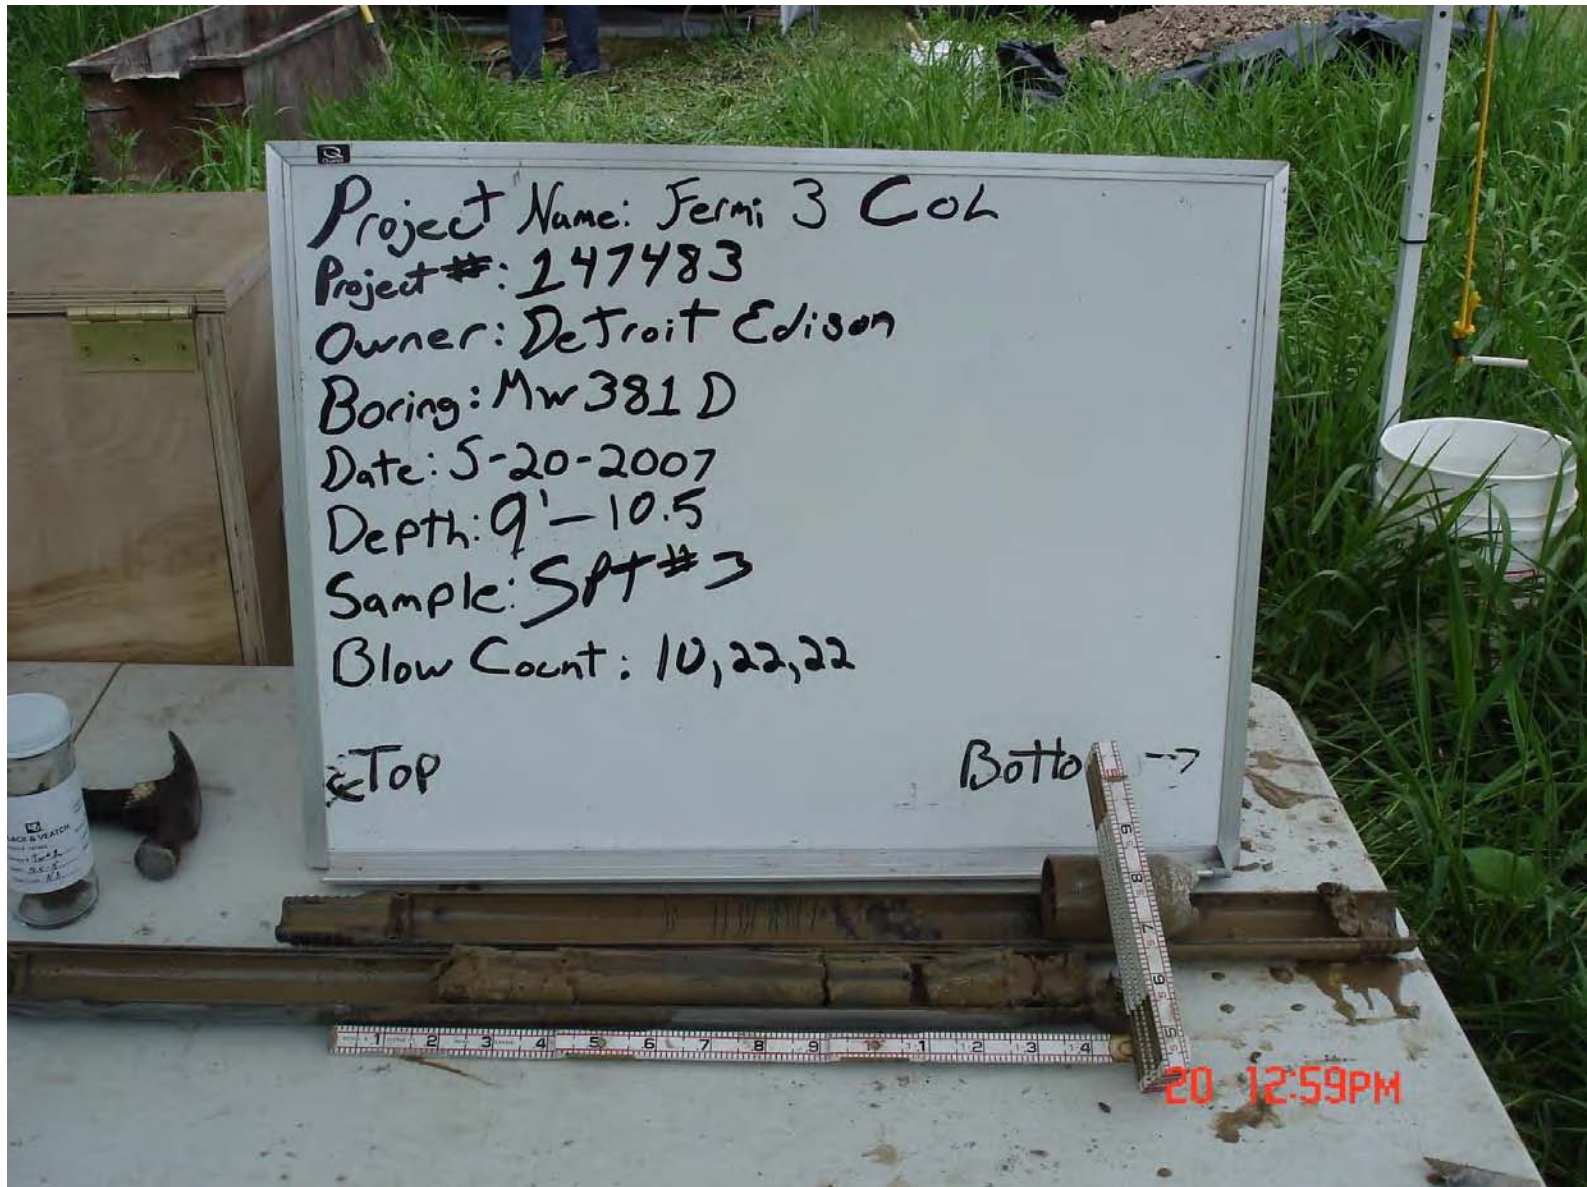 Project Name: Fermi 3 COL
Project #: 147483
Owner: Detroit Edison
Boring: MW381D
Date: 5-20-2007
Depth: 9' - 10.5
Sample: SPT #3
Blow Count: 10,22,22
←Top
Botto -->
& VEATCH
9
8
7
6
5
1 2 3 4 5 6 7 8 9 10 11 12 13 14
20 12:59PM